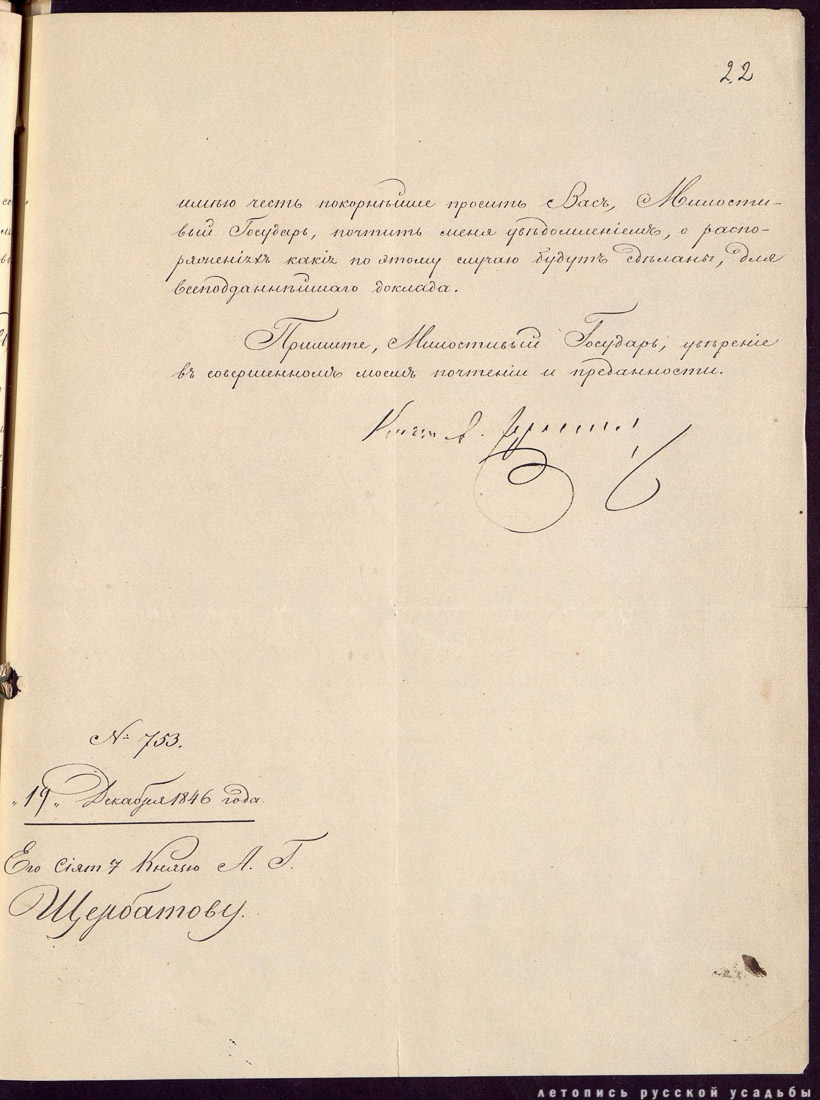 22
имѣю честь покорнѣйше просить Васъ, Милости-
вый Государь, почтить меня увѣдомленіемъ, о распо-
ряженіяхъ какія по этому случаю будутъ сдѣланы, для
всеподданнѣйшаго доклада.
Примите, Милостивый Государь, увѣреніе
въ совершенномъ моемъ почтеніи и преданности.
№ 753.
„19„ Декабря 1846 года.
Его Сіят Князю А. Г.
Щербатову.
летопись русской усадьбы